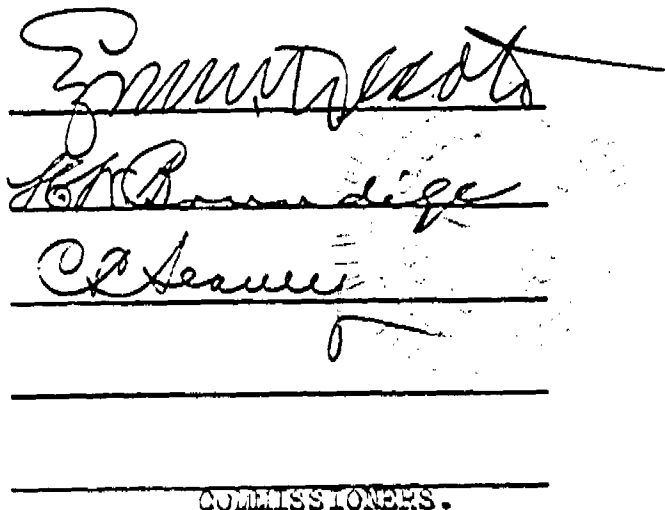 Ezra W. Decoto
H W Brundige
C L Seavey
COMMISSIONERS.